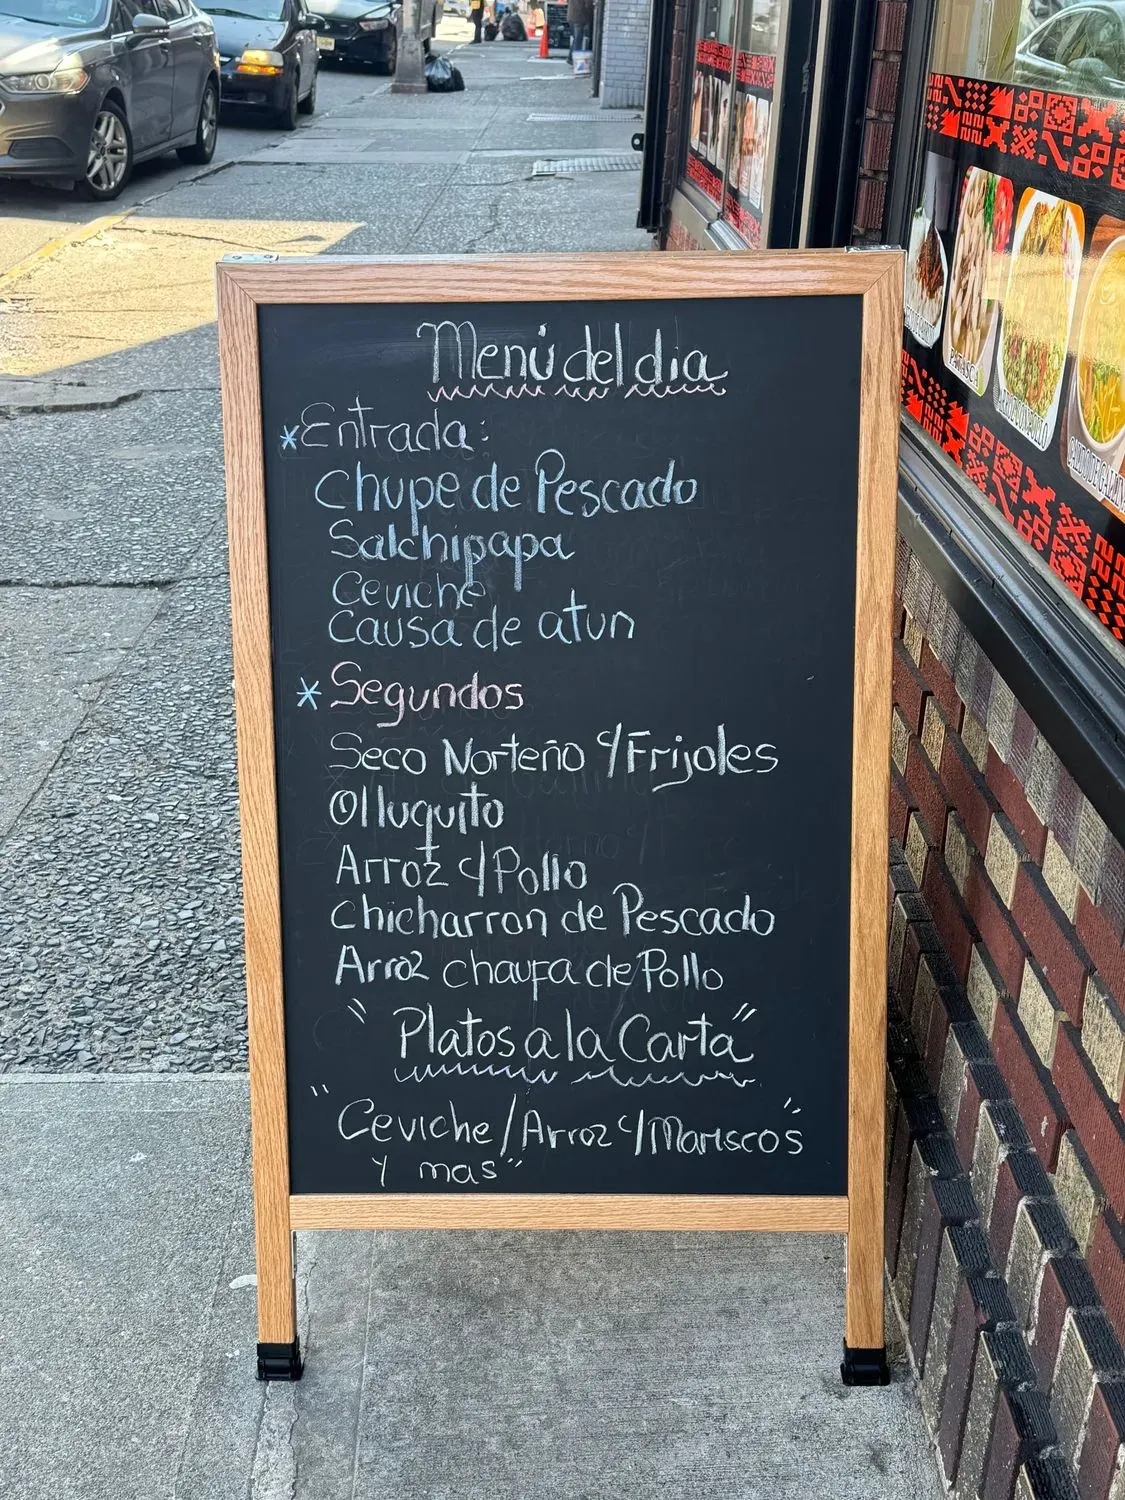 Menú del dia
*Entrada:
Chupe de Pescado
Salchipapa
Ceviche
Causa de atun
*Segundos
Seco Norteño c/Frijoles
Olluquito
Arroz c/Pollo
Chicharron de Pescado
Arroz chaufa de Pollo
"Platos a la Carta"
"Ceviche/Arroz c/Mariscos"
y mas"